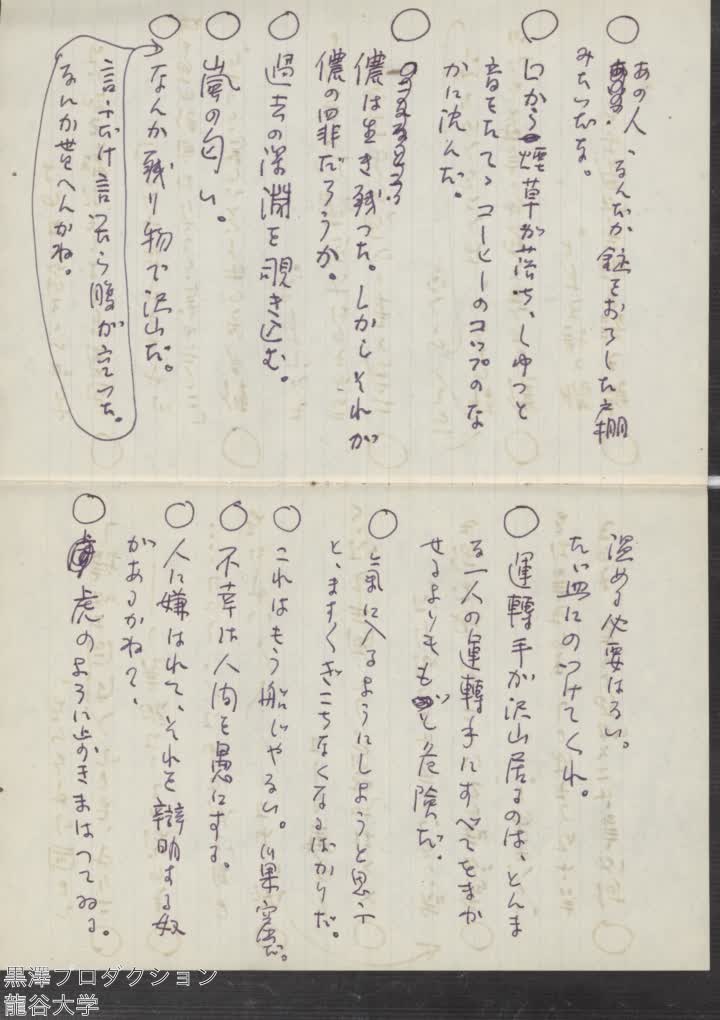 ○ あの人、なんだか錠をおろした戸棚
みたいだな。
○ 口から煙草が落ち、しゆつと
音をたてゝコーヒーのコップのな
かに沈んだ。
○
儂は生き残つた。しかしそれが
儂の罪だろうか。
○ 過去の深淵を覗き込む。
○ 嵐の匂い。
○ なんか残り物で沢山だ。
言ふだけ言つたら腹が立つた。
なんか世へんかね。
温める必要はない。
たゞ皿にのつけてくれ。
○ 運轉手が沢山居るのは、とんま
な一人の運轉手にすべてをまか
せるよりもまだ危険だ。
○ 氣に入るようにしようと思ふ
と、ますますぎこちなくなるばかりだ。
○ これはもう船じやない。
○ 不幸は人間を愚にする。
○ 人に嫌はれて、それを辯明する奴
があるかね?、
○ 虎のように歩きまはつてゐる。
黒澤プロダクション
龍谷大学